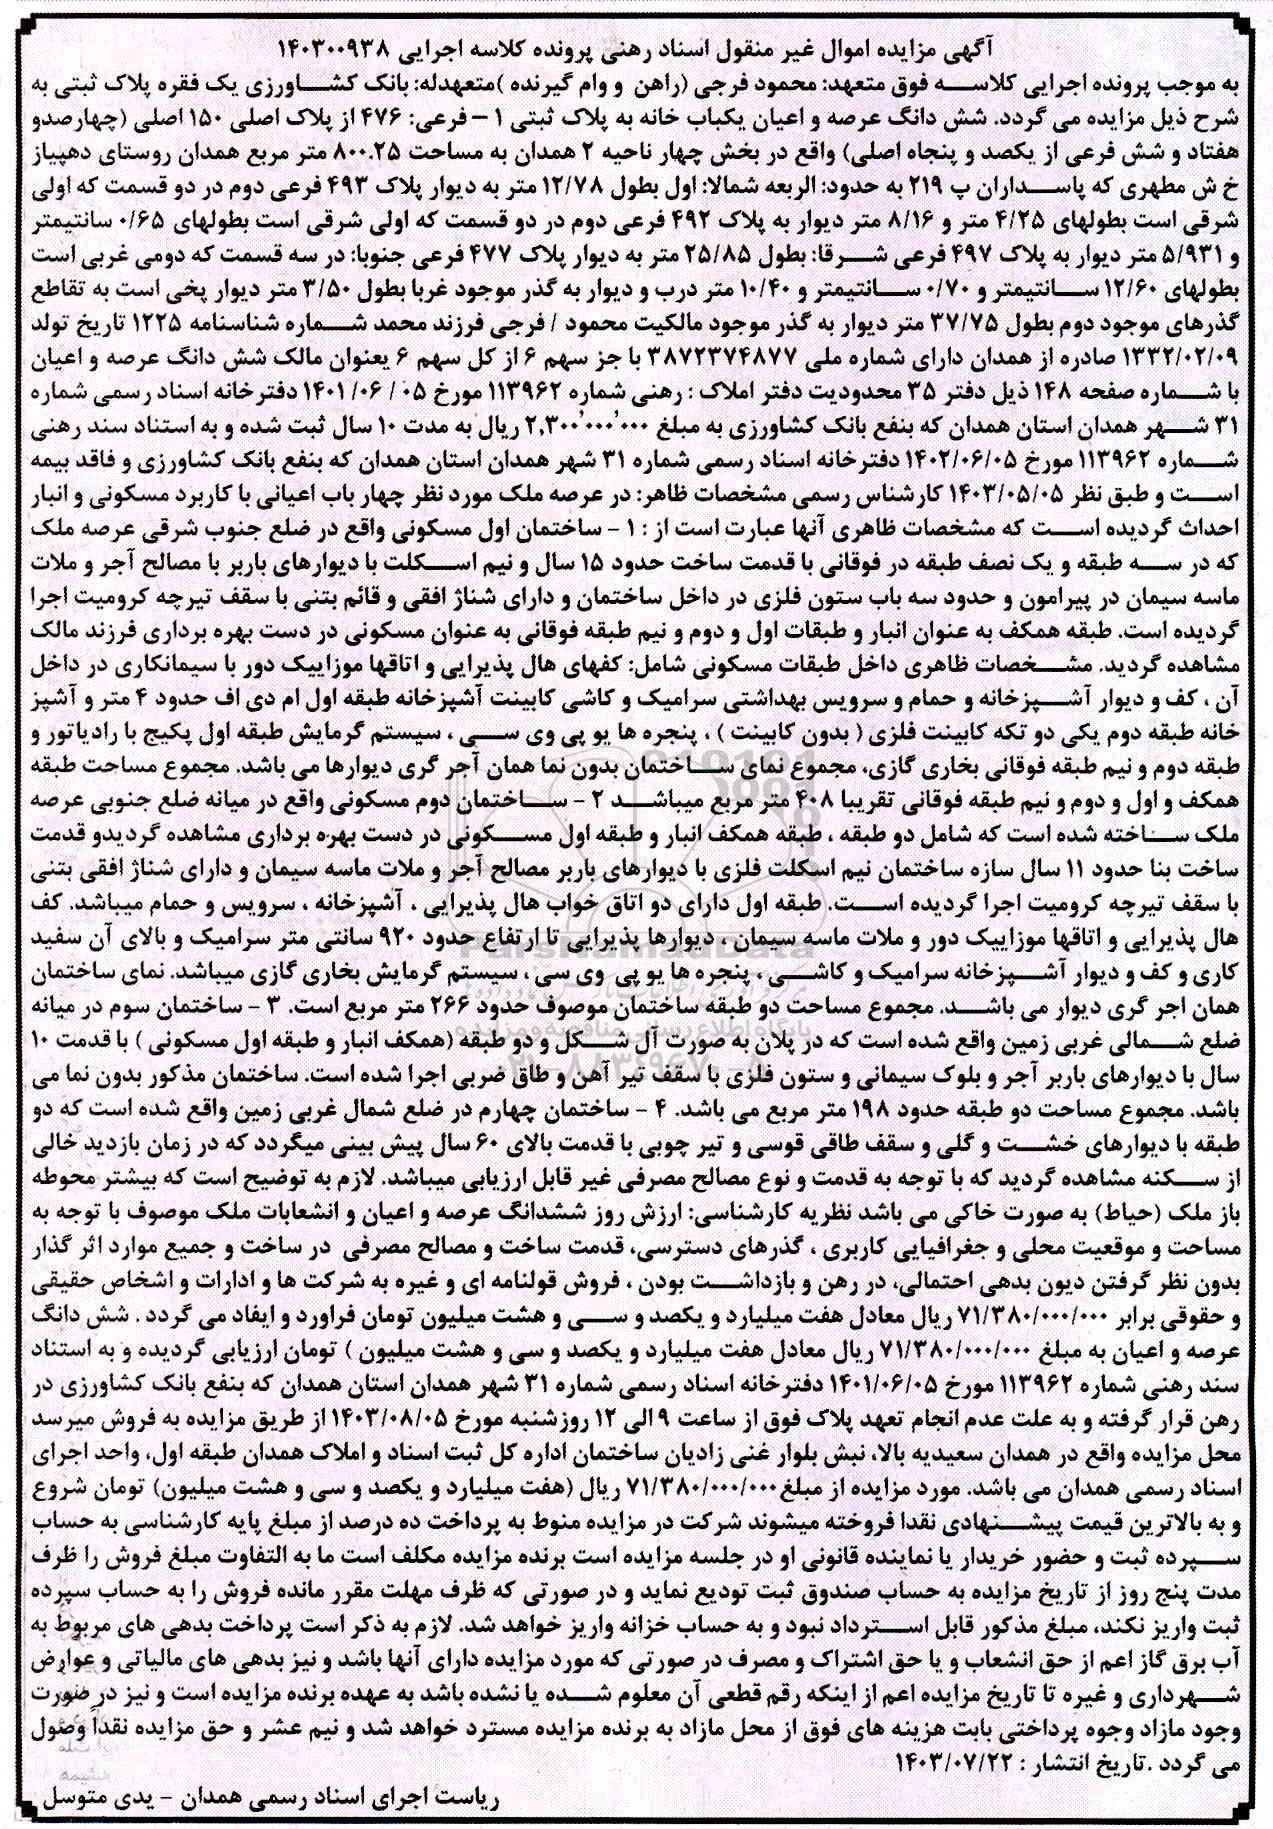 آگهی مزایده اموال غیر منقول اسناد رهنی پرونده کلاسه اجرایی ۱۴۰۳۰۰۹۳۸
به موجب پرونده اجرایی کلاسه فوق متعهد: محمود فرجی (راهن و وام گیرنده )متعهدله: بانک کشاورزی یک فقره پلاک ثبتی به
شرح ذیل مزایده می گردد. شش دانگ عرصه و اعیان یکباب خانه به پلاک ثبتی ۱ – فرعی: ۴۷۶ از پلاک اصلی ۱۵۰ اصلی (چهارصدو
هفتاد و شش فرعی از یکصد و پنجاه اصلی) واقع در بخش چهار ناحیه ۲ همدان به مساحت ۸۰۰.۲۵ متر مربع همدان روستای دهپیاز
خ ش مطهری که پاسداران پ ۲۱۹ به حدود: الربعه شمالا: اول بطول ۱۲/۷۸ متر به دیوار پلاک ۴۹۳ فرعی دوم در دو قسمت که اولی
شرقی است بطولهای ۴/۲۵ متر و ۸/۱۶ متر دیوار به پلاک ۴۹۲ فرعی دوم در دو قسمت که اولی شرقی است بطولهای ۰/۶۵ سانتیمتر
و ۵/۹۳۱ متر دیوار به پلاک ۴۹۷ فرعی شرقا: بطول ۲۵/۸۵ متر به دیوار پلاک ۴۷۷ فرعی جنوبا: در سه قسمت که دومی غربی است
بطولهای ۱۲/۶۰ سانتیمتر و ۰/۷۰ سانتیمتر و ۱۰/۴۰ متر درب و دیوار به گذر موجود غربا بطول ۳/۵۰ متر دیوار پخی است به تقاطع
گذرهای موجود دوم بطول ۳۷/۷۵ متر دیوار به گذر موجود مالکیت محمود / فرجی فرزند محمد شماره شناسنامه ۱۲۲۵ تاریخ تولد
۱۳۳۲/۰۲/۰۹ صادره از همدان دارای شماره ملی ۳۸۷۲۳۷۴۸۷۷ با جز سهم ۶ از کل سهم ۶ یعنوان مالک شش دانگ عرصه و اعیان
با شماره صفحه ۱۴۸ ذیل دفتر ۳۵ محدودیت دفتر املاک : رهنی شماره ۱۱۳۹۶۲ مورخ ۰۵ / ۰۶/ ۱۴۰۱ دفترخانه اسناد رسمی شماره
۳۱ شهر همدان استان همدان که بنفع بانک کشاورزی به مبلغ ۲,۳۰۰٬۰۰۰٬۰۰۰ ریال به مدت ۱۰ سال ثبت شده و به استناد سند رهنی
شماره ۱۱۳۹۶۲ مورخ ۱۴۰۲/۰۶/۰۵ دفترخانه اسناد رسمی شماره ۳۱ شهر همدان استان همدان که بنفع بانک کشاورزی و فاقد بیمه
است و طبق نظر ۱۴۰۳/۰۵/۰۵ کارشناس رسمی مشخصات ظاهر: در عرصه ملک مورد نظر چهار باب اعیانی با کاربرد مسکونی و انبار
احداث گردیده است که مشخصات ظاهری آنها عبارت است از : ۱ – ساختمان اول مسکونی واقع در ضلع جنوب شرقی عرصه ملک
که در سه طبقه و یک نصف طبقه در فوقانی با قدمت ساخت حدود ۱۵ سال و نیم اسکلت با دیوارهای باربر با مصالح آجر و ملات
ماسه سیمان در پیرامون و حدود سه باب ستون فلزی در داخل ساختمان و دارای شناژ افقی و قائم بتنی با سقف تیرچه کرومیت اجرا
گردیده است. طبقه همکف به عنوان انبار و طبقات اول و دوم و نیم طبقه فوقانی به عنوان مسکونی در دست بهره برداری فرزند مالک
مشاهده گردید. مشخصات ظاهری داخل طبقات مسکونی شامل: کفهای هال پذیرایی و اتاقها موزاییک دور با سیمانکاری در داخل
آن ، کف و دیوار آشپزخانه و حمام و سرویس بهداشتی سرامیک و کاشی کابینت آشپزخانه طبقه اول ام دی اف حدود ۴ متر و آشپز
خانه طبقه دوم یکی دو تکه کابینت فلزی ( بدون کابینت ) ، پنجره ها یو پی وی سی ، سیستم گرمایش طبقه اول پکیج با رادیاتور و
طبقه دوم و نیم طبقه فوقانی بخاری گازی، مجموع نمای ساختمان بدون نما همان آجر گری دیوارها می باشد. مجموع مساحت طبقه
همکف و اول و دوم و نیم طبقه فوقانی تقریبا ۴۰۸ متر مربع میباشد ۲ – ساختمان دوم مسکونی واقع در میانه ضلع جنوبی عرصه
ملک ساخته شده است که شامل دو طبقه ، طبقه همکف انبار و طبقه اول مسکونی در دست بهره برداری مشاهده گردیدو قدمت
ساخت بنا حدود ۱۱ سال سازه ساختمان نیم اسکلت فلزی با دیوارهای باربر مصالح آجر و ملات ماسه سیمان و دارای شناژ افقی بتنی
با سقف تیرچه کرومیت اجرا گردیده است. طبقه اول دارای دو اتاق خواب هال پذیرایی ، آشپزخانه ، سرویس و حمام میباشد. کف
هال پذیرایی و اتاقها موزاییک دور و ملات ماسه سیمان ، دیوارها پذیرایی تا ارتفاع حدود ۹۲۰ سانتی متر سرامیک و بالای آن سفید
کاری و کف و دیوار آشپزخانه سرامیک و کاشی ، پنجره ها یو پی وی سی ، سیستم گرمایش بخاری گازی میباشد. نمای ساختمان
همان اجر گری دیوار می باشد. مجموع مساحت دو طبقه ساختمان موصوف حدود ۲۶۶ متر مربع است. ۳ – ساختمان سوم در میانه
ضلع شمالی غربی زمین واقع شده است که در پلان به صورت آل شکل و دو طبقه (همکف انبار و طبقه اول مسکونی ) با قدمت ۱۰
سال با دیوارهای باربر آجر و بلوک سیمانی و ستون فلزی با سقف تیر آهن و طاق ضربی اجرا شده است. ساختمان مذکور بدون نما می
باشد. مجموع مساحت دو طبقه حدود ۱۹۸ متر مربع می باشد. ۴ – ساختمان چهارم در ضلع شمال غربی زمین واقع شده است که دو
طبقه با دیوارهای خشت و گلی و سقف طاقی قوسی و تیر چوبی با قدمت بالای ۶۰ سال پیش بینی میگردد که در زمان بازدید خالی
از سکنه مشاهده گردید که با توجه به قدمت و نوع مصالح مصرفی غیر قابل ارزیابی میباشد. لازم به توضیح است که بیشتر محوطه
باز ملک (حیاط) به صورت خاکی می باشد نظریه کارشناسی: ارزش روز ششدانگ عرصه و اعیان و انشعابات ملک موصوف با توجه به
مساحت و موقعیت محلی و جغرافیایی کاربری ، گذرهای دسترسی، قدمت ساخت و مصالح مصرفی در ساخت و جمیع موارد اثر گذار
بدون نظر گرفتن دیون بدهی احتمالی، در رهن و بازداشت بودن ، فروش قولنامه ای و غیره به شرکت ها و ادارات و اشخاص حقیقی
و حقوقی برابر ۷۱/۳۸۰/۰۰۰/۰۰۰ ریال معادل هفت میلیارد و یکصد و سی و هشت میلیون تومان فراورد و ایفاد می گردد . شش دانگ
عرصه و اعیان به مبلغ ۷۱/۳۸۰/۰۰۰/۰۰۰ ریال معادل هفت میلیارد و یکصد و سی و هشت میلیون ) تومان ارزیابی گردیده و به استناد
سند رهنی شماره ۱۱۳۹۶۲ مورخ ۱۴۰۱/۰۶/۰۵ دفترخانه اسناد رسمی شماره ۳۱ شهر همدان استان همدان که بنفع بانک کشاورزی در
رهن قرار گرفته و به علت عدم انجام تعهد پلاک فوق از ساعت ۹ الی ۱۲ روزشنبه مورخ ۱۴۰۳/۰۸/۰۵ از طریق مزایده به فروش میرسد
محل مزایده واقع در همدان سعیدیه بالا، نبش بلوار غنی زادیان ساختمان اداره کل ثبت اسناد و املاک همدان طبقه اول، واحد اجرای
اسناد رسمی همدان می باشد. مورد مزایده از مبلغ ۷۱/۳۸۰/۰۰۰/۰۰۰ ریال (هفت میلیارد و یکصد و سی و هشت میلیون) تومان شروع
و به بالاترین قیمت پیشنهادی نقدا فروخته میشوند شرکت در مزایده منوط به پرداخت ده درصد از مبلغ پایه کارشناسی به حساب
سپرده ثبت و حضور خریدار یا نماینده قانونی او در جلسه مزایده است برنده مزایده مکلف است ما به التفاوت مبلغ فروش را ظرف
مدت پنج روز از تاریخ مزایده به حساب صندوق ثبت تودیع نماید و در صورتی که ظرف مهلت مقرر مانده فروش را به حساب سپرده
ثبت واریز نکند، مبلغ مذکور قابل استرداد نبود و به حساب خزانه واریز خواهد شد. لازم به ذکر است پرداخت بدهی های مربوط به
آب برق گاز اعم از حق انشعاب و یا حق اشتراک و مصرف در صورتی که مورد مزایده دارای آنها باشد و نیز بدهی های مالیاتی و عوارض
شهرداری و غیره تا تاریخ مزایده اعم از اینکه رقم قطعی آن معلوم شده یا نشده باشد به عهده برنده مزایده است و نیز در صورت
وجود مازاد وجوه پرداختی بابت هزینه های فوق از محل مازاد به برنده مزایده مسترد خواهد شد و نیم عشر و حق مزایده نقداً وصول
می گردد .تاریخ انتشار : ۱۴۰۳/۰۷/۲۲
ریاست اجرای اسناد رسمی همدان – یدی متوسل